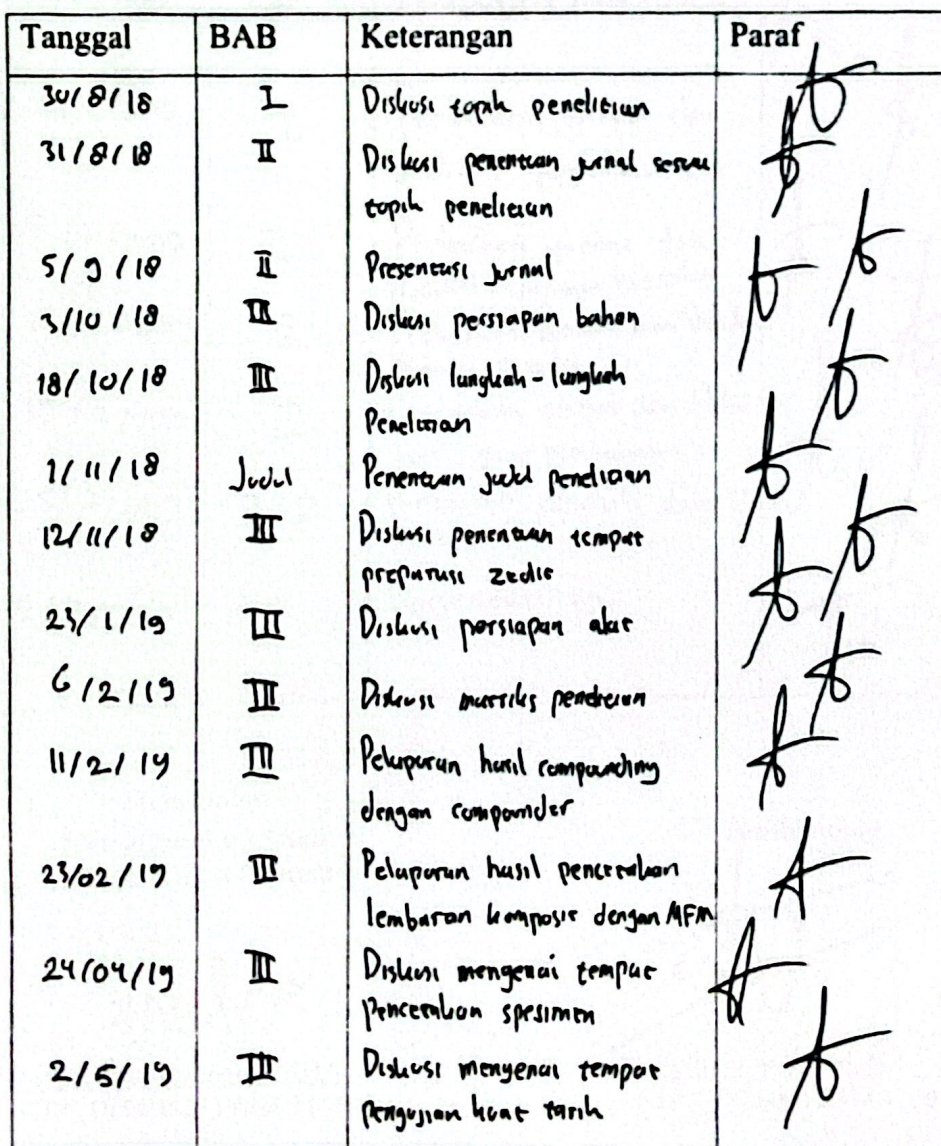 Tanggal BAB Keterangan Paraf
30/8/18 I Diskusi topik penelitian
31/8/18 II Diskusi penentuan jurnal sesuai
topik penelitian
5/9/18 II Presentasi jurnal
3/10/18 III Diskusi persiapan bahan
18/10/18 III Diskusi langkah-langkah
Penelitian
1/11/18 Judul Penentuan judul penelitian
12/11/18 III Diskusi penentuan tempat
preparasi
23/1/19 III Diskusi persiapan alat
6/2/19 III Diskusi matriks penelitian
11/2/19 III Pelaporan hasil compounding
dengan compounder
23/02/19 III Pelaporan hasil pencetakan
lembaran komposit dengan MFM
24/04/19 III Diskusi mengenai tempat
pencetakan spesimen
2/5/19 III Diskusi mengenai tempat
pengujian kuat tarik